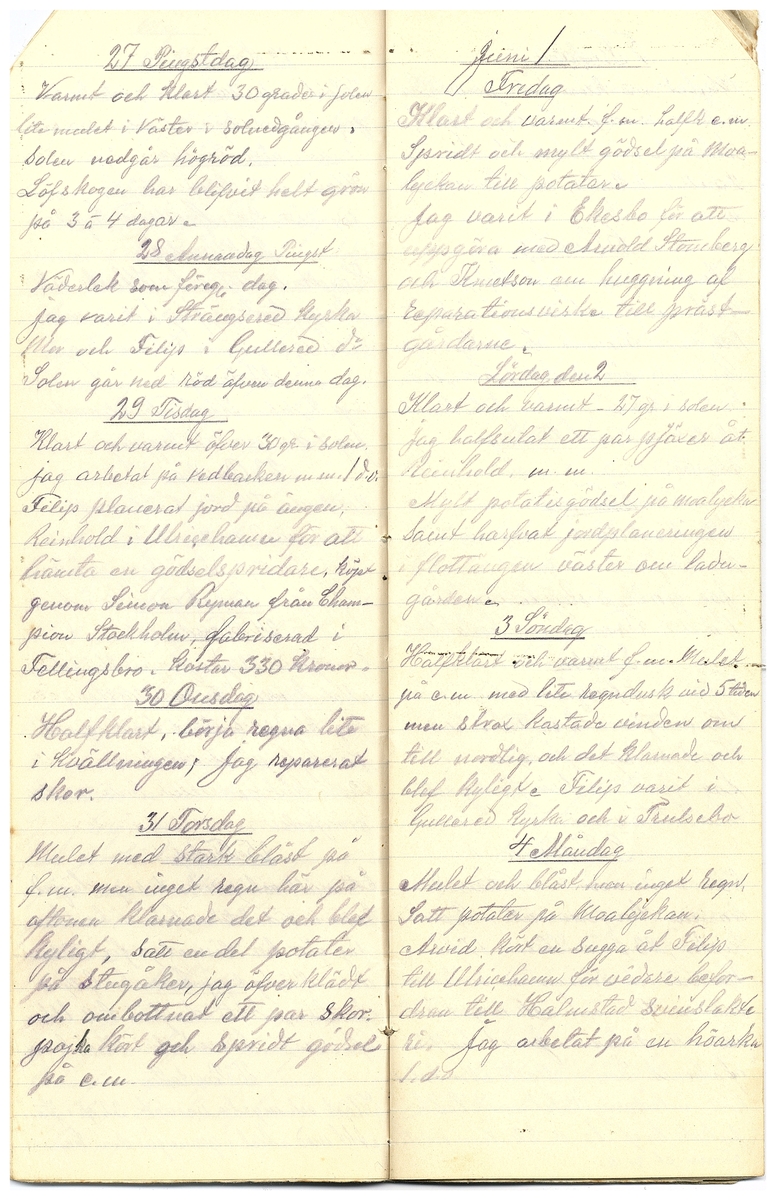 27 Pingstdag
Varmt och klart 30 grader i solen
lite mulet i Väster v solnedgången.
Solen nedgår högröd.
Löfskogen har blifvit helt grön
på 3 à 4 dagar.
28 Annandag Pingst
Väderlek som föreg. dag.
jag varit i Strängsered Kyrka
Mor och Filip i Gullered do
Solen går ned röd äfven denna dag.
29 Tisdag
Klart och varmt öfver 30 gr. i solen.
jag arbetat på vedbacken m.m. 1 d.v.
Filip planerat jord på ängen.
Reinhold i Ulricehamn för att
hämta en gödselspridare, köpt
genom Simon Ryman från Cham-
pion Stockholm, fabriserad i
Fellingsbro. kostar 330 kronor.
30 Onsdag
Halfklart, börja regna lite
i kvällningen; jag reparerat
skor.
31 Torsdag
Mulet med stark blåst på
f.m. men inget regn här på
aftonen klarnade det och blef
kyligt, satt en del potater
på Stugåker, jag öfverklädt
och ombottnat ett par skor.
pojka kört och spridt gödsel
på e.m.
Juni 1
Fredag
Klart och varmt f.m. halfk e.m.
Spridt och mylt gödsel på Moa-
lyckan till potater.
Jag varit i Ekesbo för att
uppgöra med Arvold Stomberg
och Knutson om huggning af
reparationsvirke till präst-
gårdarne.
Lördag den 2
Klart och varmt - 27 gr. i solen.
jag halfsulat ett par pjäxer åt
Reinhold. m. m.
Mylt potatisgödsel på moalyckan
samt harfvat jordplaneringen
i flottängen väster om ladu-
gården.
3 Söndag
Halfklart och varmt f.m. Mulet
på e.m. med lite regndusk vid 5 tiden
men strax kastade vinden om
till nordlig, och det klarnade och
blef kyligt. Filip varit i
Gullered Kyrka och i Trulsebo
4 Måndag
Mulet och blåst men inget regn.
Satt potater på Moalyckan.
Arvid kört en sugga åt Filip
till Ulricehamn för vidare befor-
dran till Halmstad Svinslakte
ri. Jag arbetat på en höarka
1. d.v